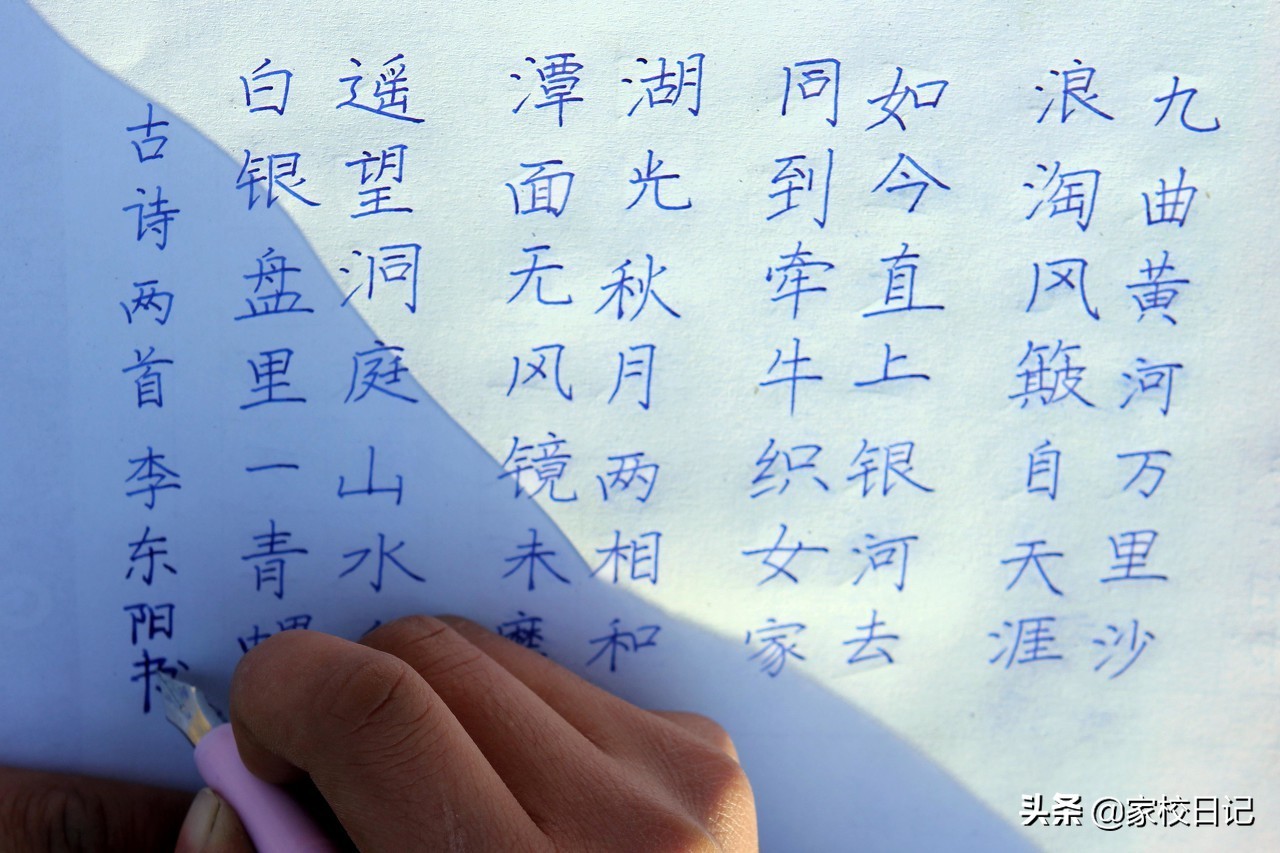 九曲黄河万里沙
浪淘风簸自天涯
如今直上银河去
同到牵牛织女家
湖光秋月两相和
潭面无风镜未磨
遥望洞庭山水
白银盘里一青螺
古诗两首李东阳书
头条 @家校日记